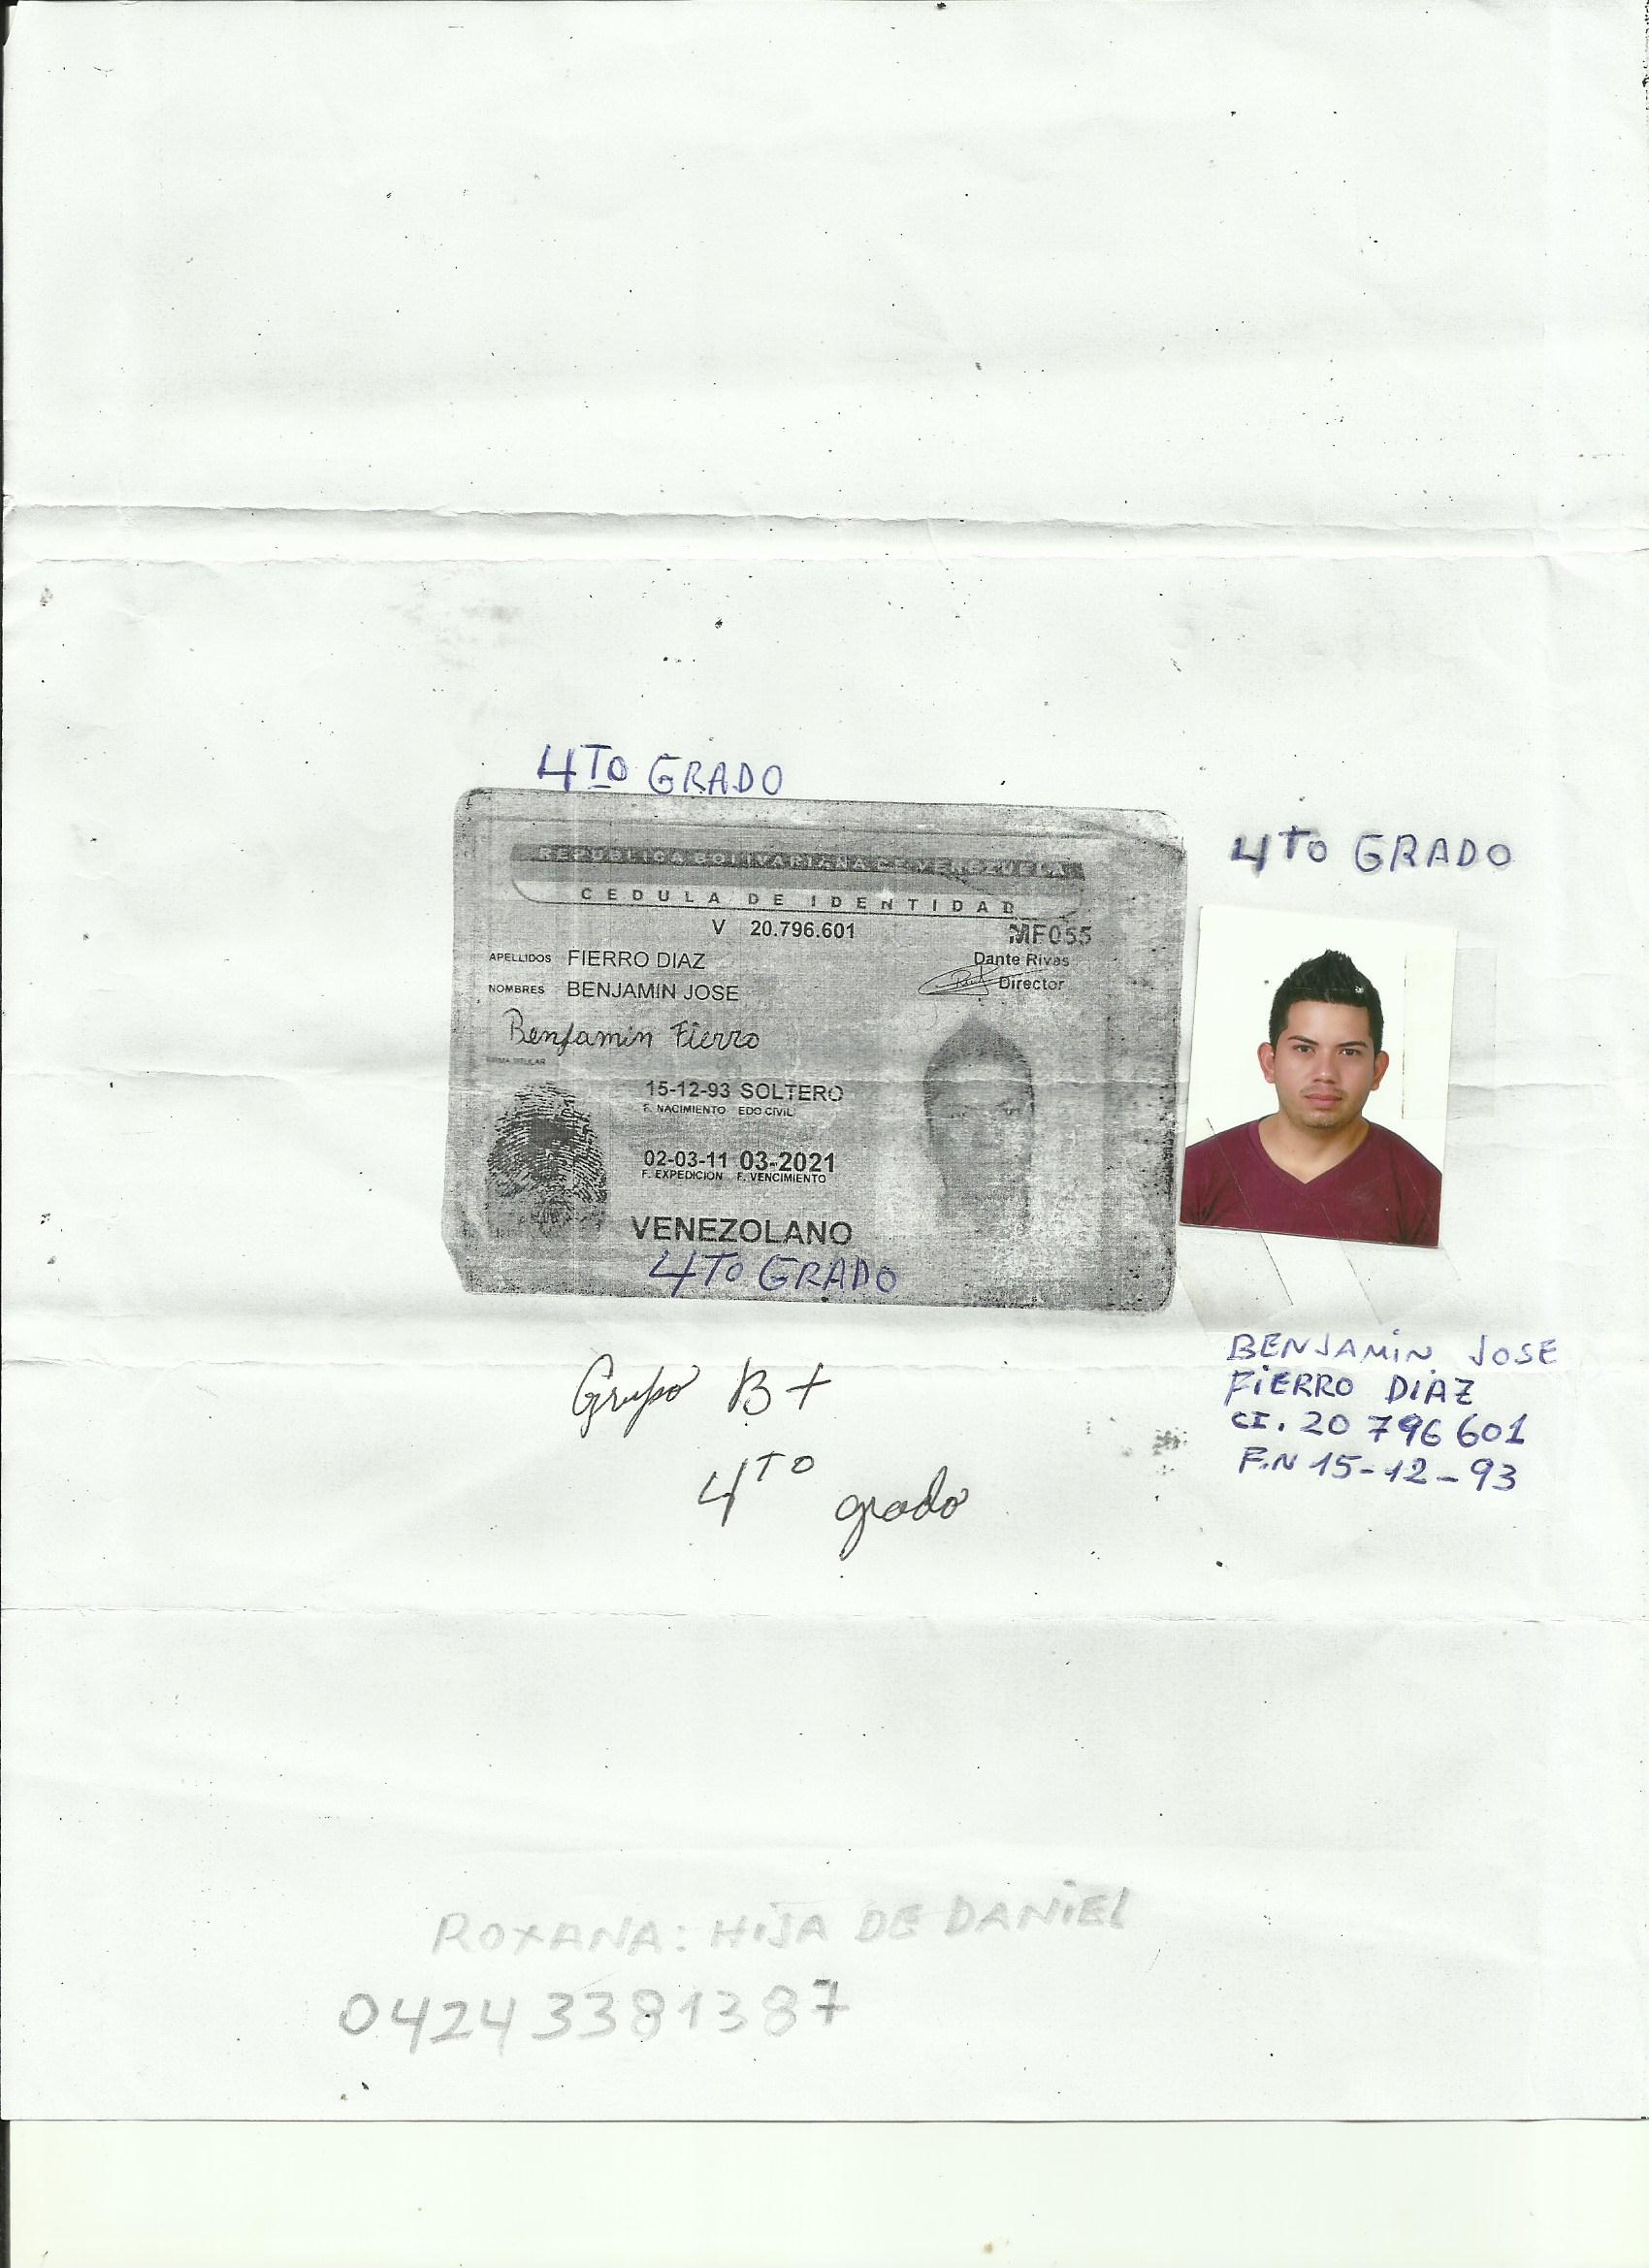 4TO GRADO
REPUBLICA BOLIVARIANA DE VENEZUELA
CEDULA DE IDENTIDAD
V 20.796.601
MF055
APELLIDOS FIERRO DIAZ
Dante Rivas
NOMBRES BENJAMIN JOSE
Director
Benjamin Fierro
FIRMA TITULAR
15-12-93 SOLTERO
F. NACIMIENTO EDO CIVIL
02-03-11 03-2021
F. EXPEDICION F. VENCIMIENTO
VENEZOLANO
4TO GRADO
4TO GRADO
BENJAMIN JOSE
FIERRO DIAZ
CI. 20 796 601
F.N 15-12-93
Grupo B+
4TO grado
ROXANA: HIJA DE DANIEL
0424 3381387